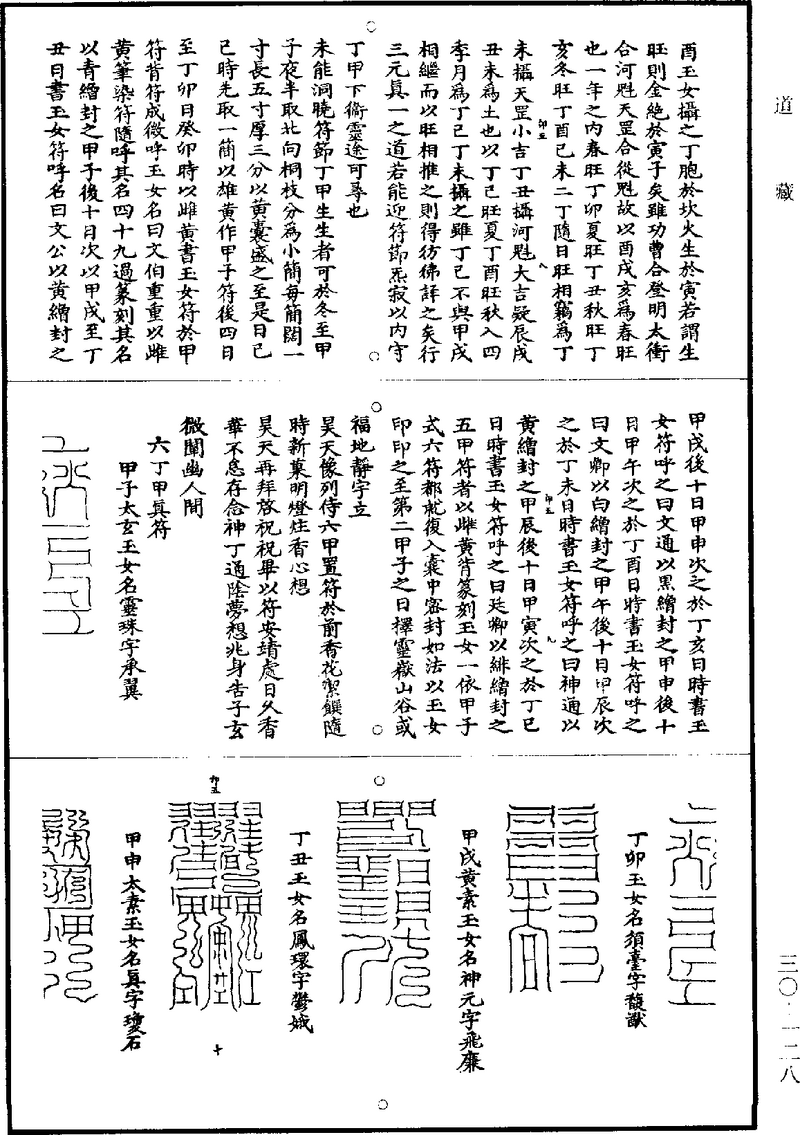 道藏
三〇·一二八
酉玉女攝之丁胞於坎火生於寅若謂生
旺則金絶於寅子矣雖功曹合登明太衝
合河魁天罡合從魁故以酉戌亥爲春旺
也一年之内春旺丁卯夏旺丁丑秋旺丁
亥冬旺丁酉己未二丁隨日旺相竊爲丁
未攝天罡小吉丁丑攝河魁大吉疑辰戌
丑未爲土也以丁己旺夏丁酉旺秋入四
季月爲丁己丁未攝之雖丁己不與甲戌
相繼而以旺相推之則得彷彿詳之矣行
三元眞一之道若能迎符節炁寂以内守
丁甲下衛靈途可尋也
未能洞曉符節丁甲生生者可於冬至甲
子夜半取北向桐枝分爲小簡每簡闊一
寸長五寸厚三分以黄囊盛之至是日已
己時先取一簡以雄黄作甲子符後四日
至丁卯日癸卯時以雌黄書玉女符於甲
符背符成微呼玉女名曰文伯重重以雌
黄筆染符隨呼其名四十九過篆刻其名
以青繒封之甲子後十日次以甲戌至丁
丑日書玉女符呼名曰文公以黄繒封之
甲戌後十日甲申次之於丁亥日時書玉
女符呼之曰文通以黒繒封之甲申後十
日甲午次之於丁酉日時書玉女符呼之
曰文卿以白繒封之甲午後十日甲辰次
之於丁未日時書玉女符呼之曰神通以
黄繒封之甲辰後十日甲寅次之於丁已
日時書玉女符呼之曰廷卿以緋繒封之
五甲符者以雌黄背篆刻玉女一依甲子
式六符都就復入囊中密封如法以玉女
印印之至第二甲子之日擇靈嶽山谷或
福地靜宇立
昊天像列侍六甲置符於前香花絜饌隨
時新菓明燈炷香心想
昊天再拜啓祝祝畢以符安靖處日久香
華不怠存念神丁通陰夢想兆身告子玄
微闡幽人間
六丁甲眞符
甲子太玄玉女名靈珠字承翼
丁卯玉女名須臺字馥猷
甲戌黄素玉女名神元字飛廉
丁丑玉女名鳳環字鬱娥
甲申太素玉女名眞字瓊石